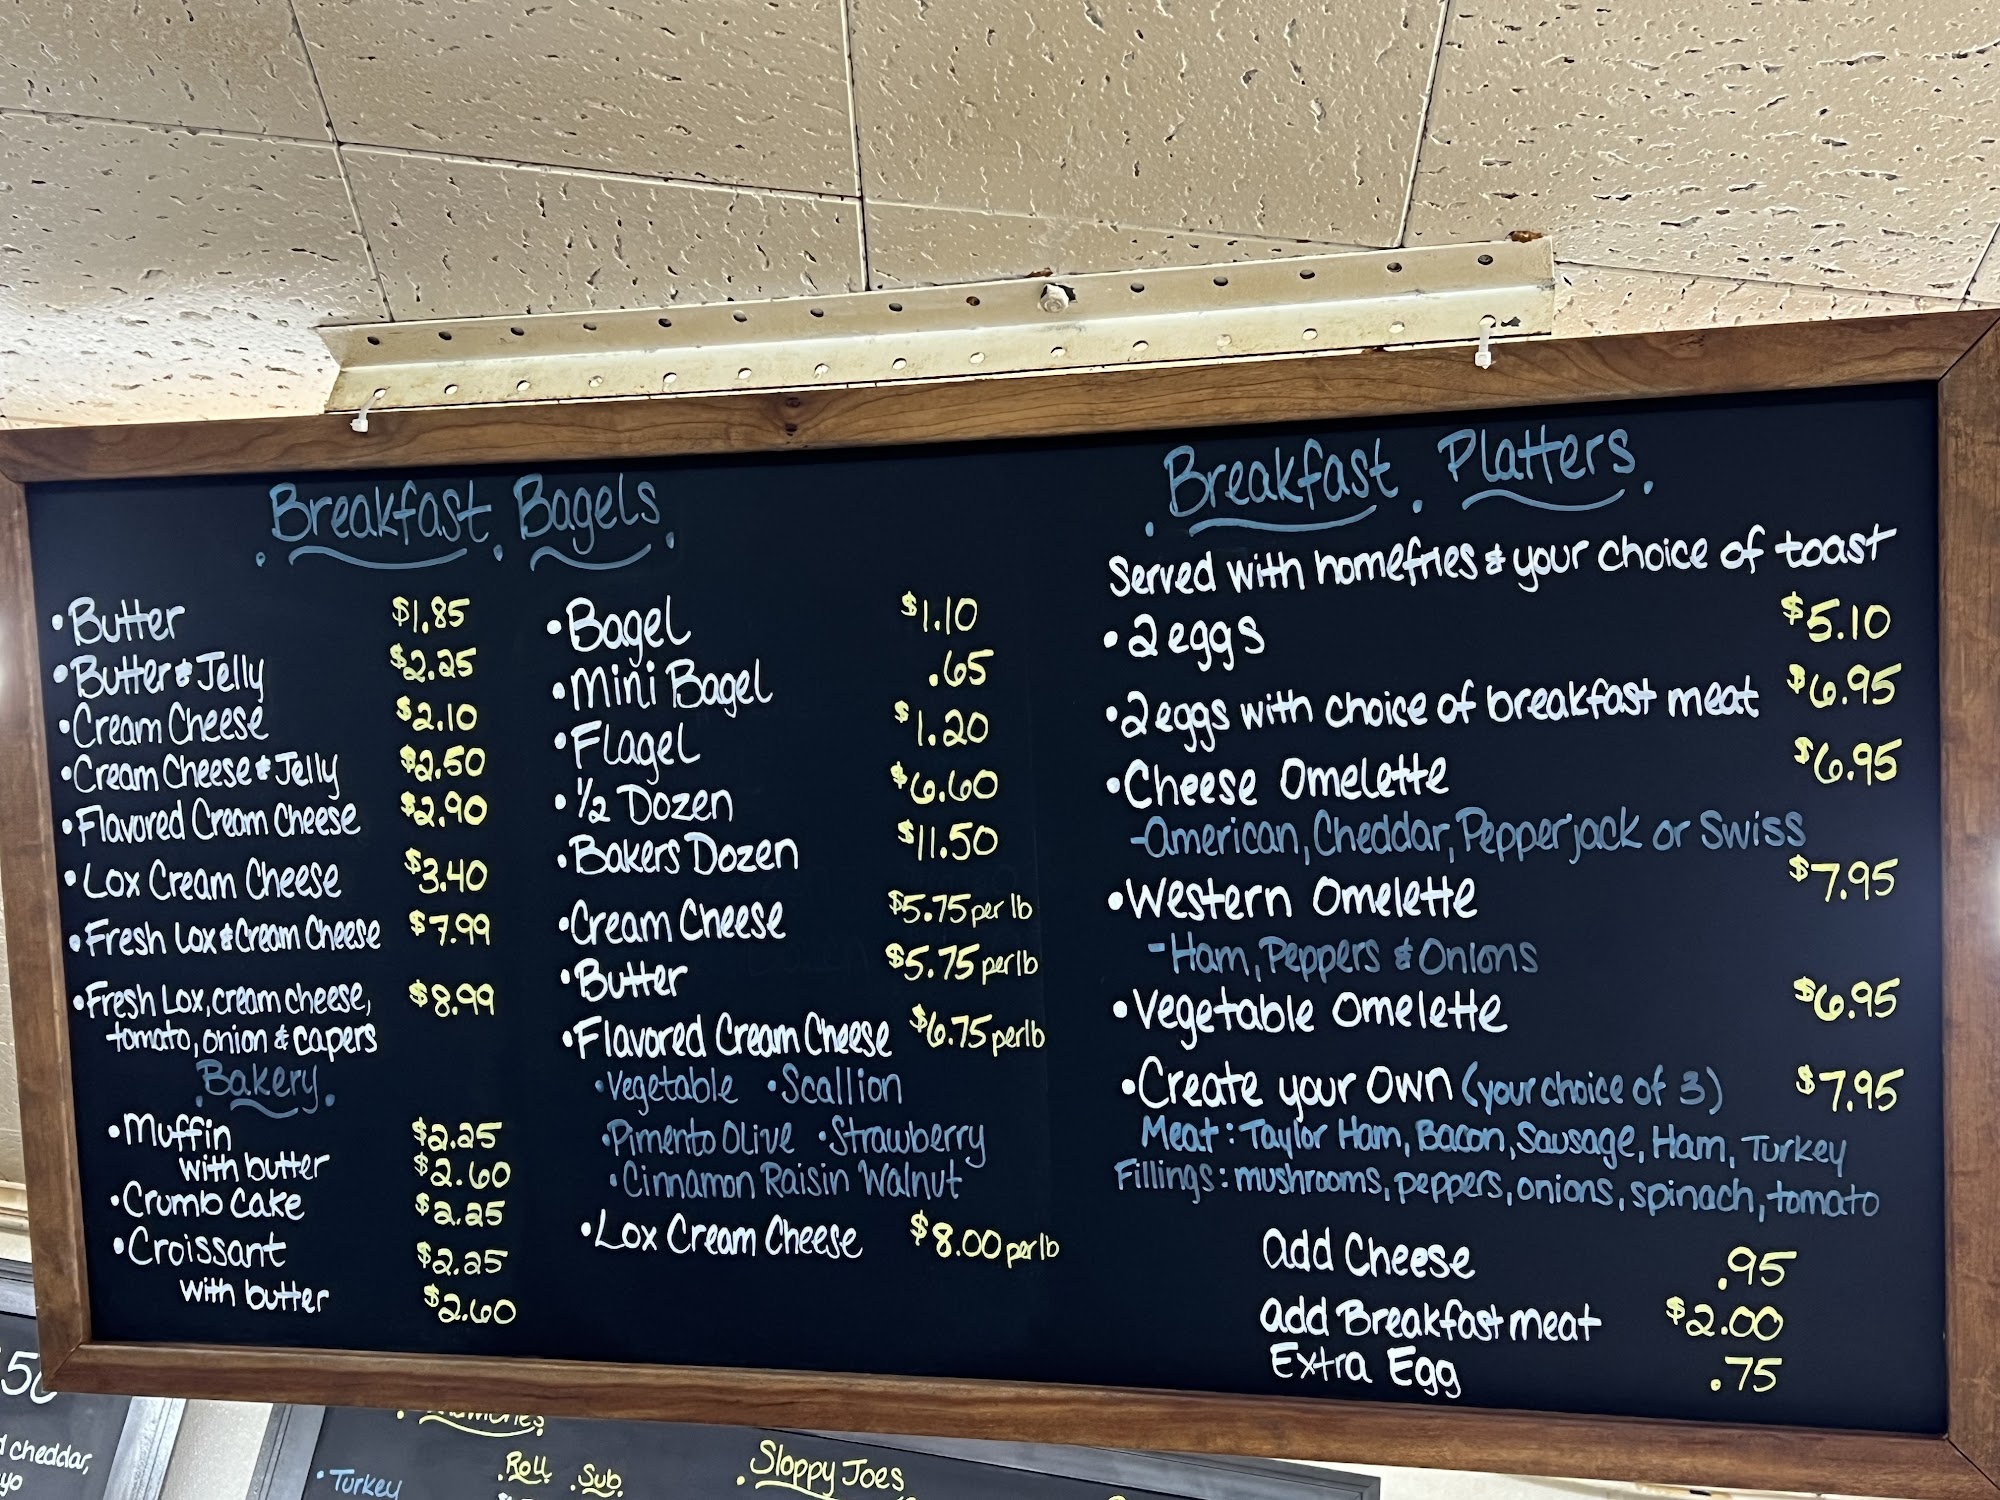 Breakfast Bagels
• Butter $1.85
• Butter & Jelly $2.25
• Cream Cheese $2.10
• Cream Cheese & Jelly $2.50
• Flavored Cream Cheese $2.90
• Lox Cream Cheese $3.40
• Fresh Lox & Cream Cheese $7.99
• Fresh Lox, cream cheese, $8.99
tomato, onion & capers
Bakery
• Muffin $2.25
with butter $2.60
• Crumb Cake $2.25
• Croissant $2.25
with butter $2.60
• Bagel $1.10
• Mini Bagel .65
• Flagel $1.20
• 1/2 Dozen $6.60
• Bakers Dozen $11.50
• Cream Cheese $5.75 per lb
• Butter $5.75 per lb
• Flavored Cream Cheese $6.75 per lb
• Vegetable • Scallion
• Pimento Olive • Strawberry
• Cinnamon Raisin Walnut
• Lox Cream Cheese $8.00 per lb
Breakfast Platters
Served with homefries & your choice of toast
• 2 eggs $5.10
• 2 eggs with choice of breakfast meat $6.95
• Cheese Omelette $6.95
- American, Cheddar, Pepperjack or Swiss
• Western Omelette $7.95
- Ham, Peppers & Onions
• Vegetable Omelette $6.95
• Create your own (your choice of 3) $7.95
Meat: Taylor Ham, Bacon, Sausage, Ham, Turkey
Fillings: mushrooms, peppers, onions, spinach, tomato
add Cheese .95
add Breakfast meat $2.00
Extra Egg .75
cheddar,
Roll Sub
• Turkey
Sloppy Joes